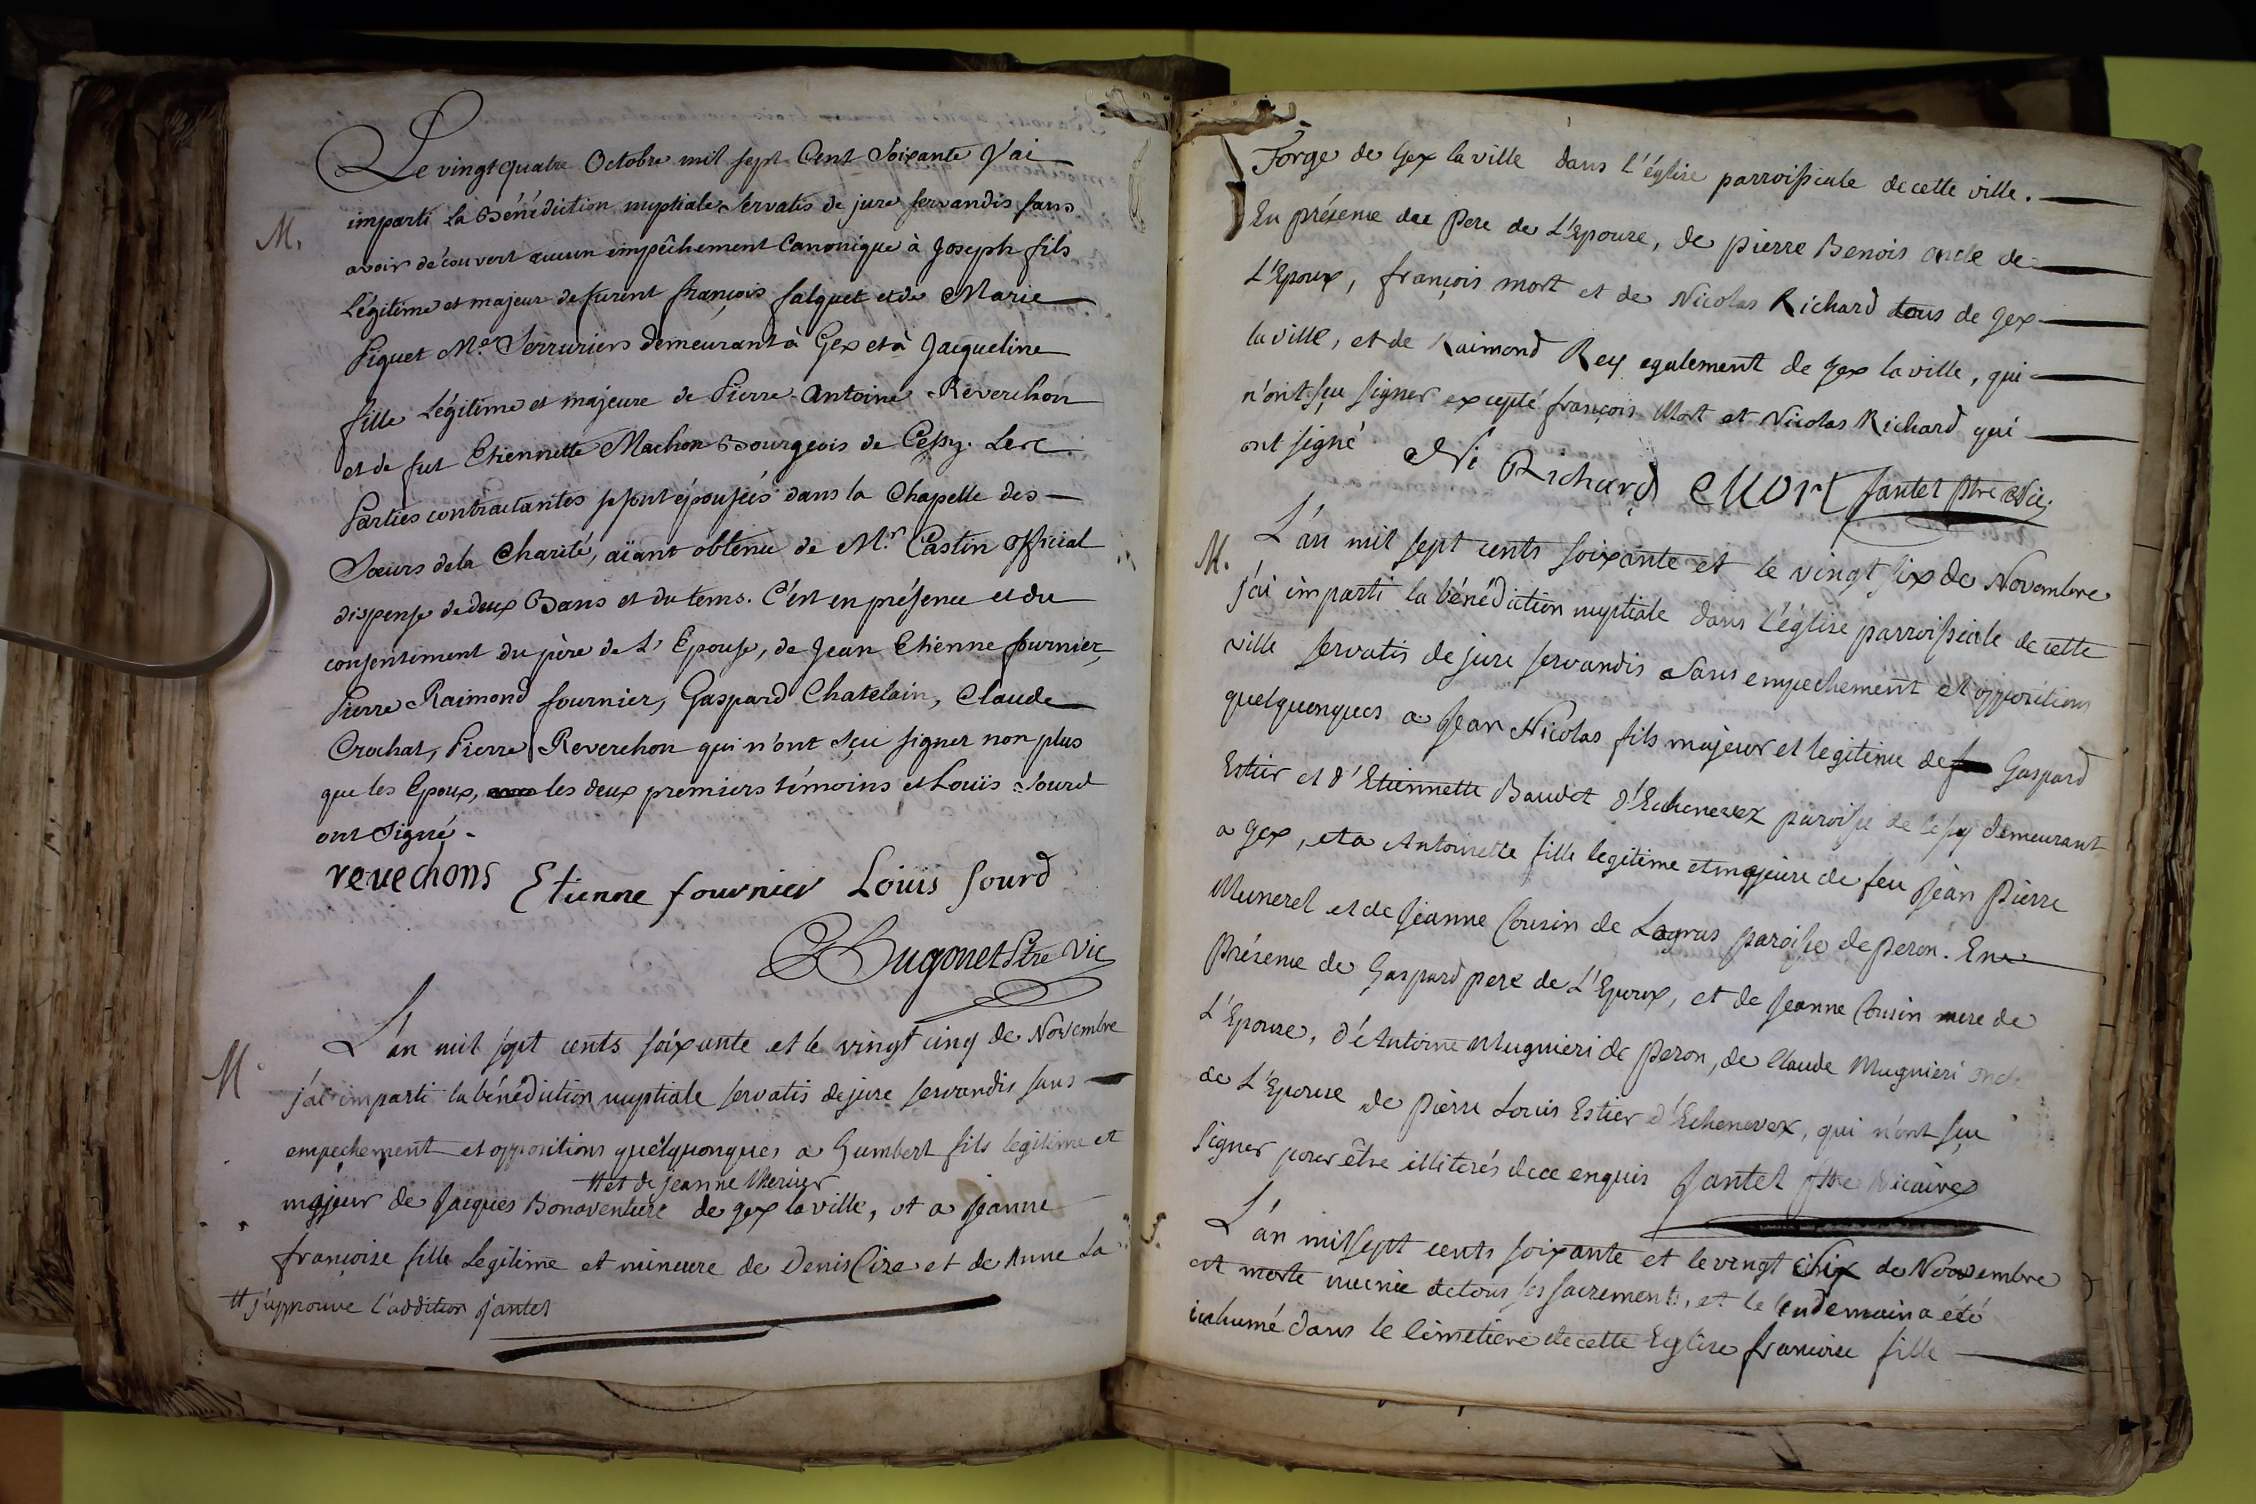 Le vingt quatre Octobre mil sept Cent Soixante J'ai
M.
imparti La Bénédiction nuptiale Servatis de jure servandis sans
avoir découvert aucun empêchement Canonique à Joseph fils
Légitime et majeur defurent françois falquet et de Marie
Piguet M.e Serruriers demeurant à Gex et à Jacqueline
fille Légitime et majeure de Pierre-Antoine Reverchon
et de fut Etiennette Machon Bourgeois de Cessy. Les
Parties contractantes se sont épousées dans la Chapelle des
Sœurs de la Charité, aïant obtenu de M.r Castin official
dispense de deux Bans et du tems. C'est en présence et du
consentement du père de L'Epouse, de Jean Etienne fournier,
Pierre Raimond fournier, Gaspard Chatelain, Claude
Crochat, Pierre Reverchon qui n'ont sçu signer non plus
que les Epoux, les deux premiers témoins et Louis Sourd
ont signé.
revechons Etienne fournier Louis Sourd
Hugonet Ptre Vic
L'an mil sept cents soixante et le vingt cinq de Novembre
M
j'ai imparti la bénédiction nuptiale servatis de jure servandis sans
empechement et oppositions quelquonques a Gumbert fils legitime et
et de jeanne Mercier
majeur de Jacques Bonaventure de gex la ville, et a jeanne
françoise fille Legitime et mineure de Denis Cire et de Anne La
j'approuve l'addition jantet
Forge de Gex la ville dans l'église parroissiale de cette ville.
En présence du Pere de L'Epouse, de pierre Benois oncle de
L'Epoux, françois mort et de Nicolas Richard tous de gex
la ville, et de Raimond Rey egalement de gex la ville, qui
n'ont sçu signer excepté françois Mort et Nicolas Richard qui
ont signé Ni Richard Mort Jantet ptre Vic.
L'an mil sept cents soixante et le vingt six de Novembre
M.
j'ai imparti la bénédiction nuptiale dans l'église parroissiale de cette
ville servatis de jure servandis sans empechement et oppositions
quelquonques a Jean Nicolas fils majeur et legitime de Gaspard
Estier et d'Etiennette Baudet d'Echenevex paroisse de Cessy demeurant
a Gex, et a Antoinette fille legitime et majeure de feu Jean Pierre
Munerel et de Jeanne Cousin de Logras paroisse de peron. En
Présence de Gaspard pere de L'Epoux, et de Jeanne Cousin mere de
L'Epouse, d'Antoine Mugnieri de Peron, de Claude Mugnieri oncle
de L'Epouse de pierre Louis Estier d'Echenevex, qui n'ont sçu
signer pour être illiterés de ce enquis Jantet ptre Vicaire
L'an mil sept cents soixante et le vingt six de Novembre
est morte munie de tous ses sacrements, et le lendemain a été
inhumé dans le Cimetiere de cette Eglise françoise fille